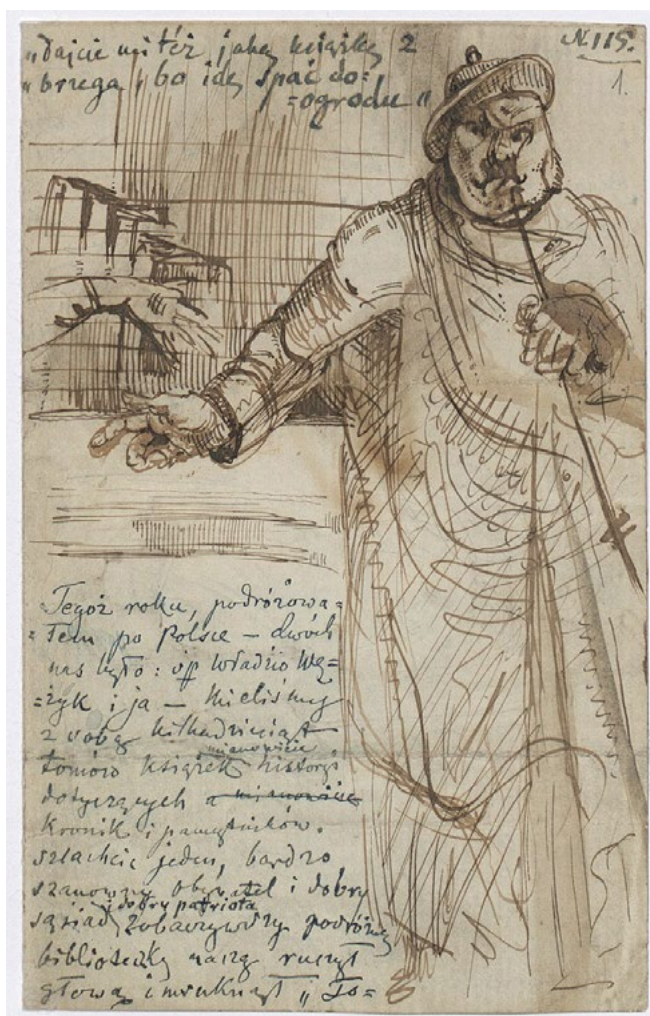 „dajcie mi też jaką książkę z
„brzega, bo idę spać do=
=ogrodu"
N. 115.
1.
Tegoż roku, podróżowa=
=łem po Polsce — dwóch
nas było: śp Władzio Wę=
=żyk i ja — Mieliśmy
z sobą kilkadziesiąt
mianowicie
tomów książek historji
dotyczących a mianowicie
kronik i pamiętników.
szlachcic jeden, bardzo
szanowny obywatel i dobry
i dobry patriota
sąsiad, zobaczywszy podróżną
biblioteczkę naszą ruszył
głową i mruknął „To=